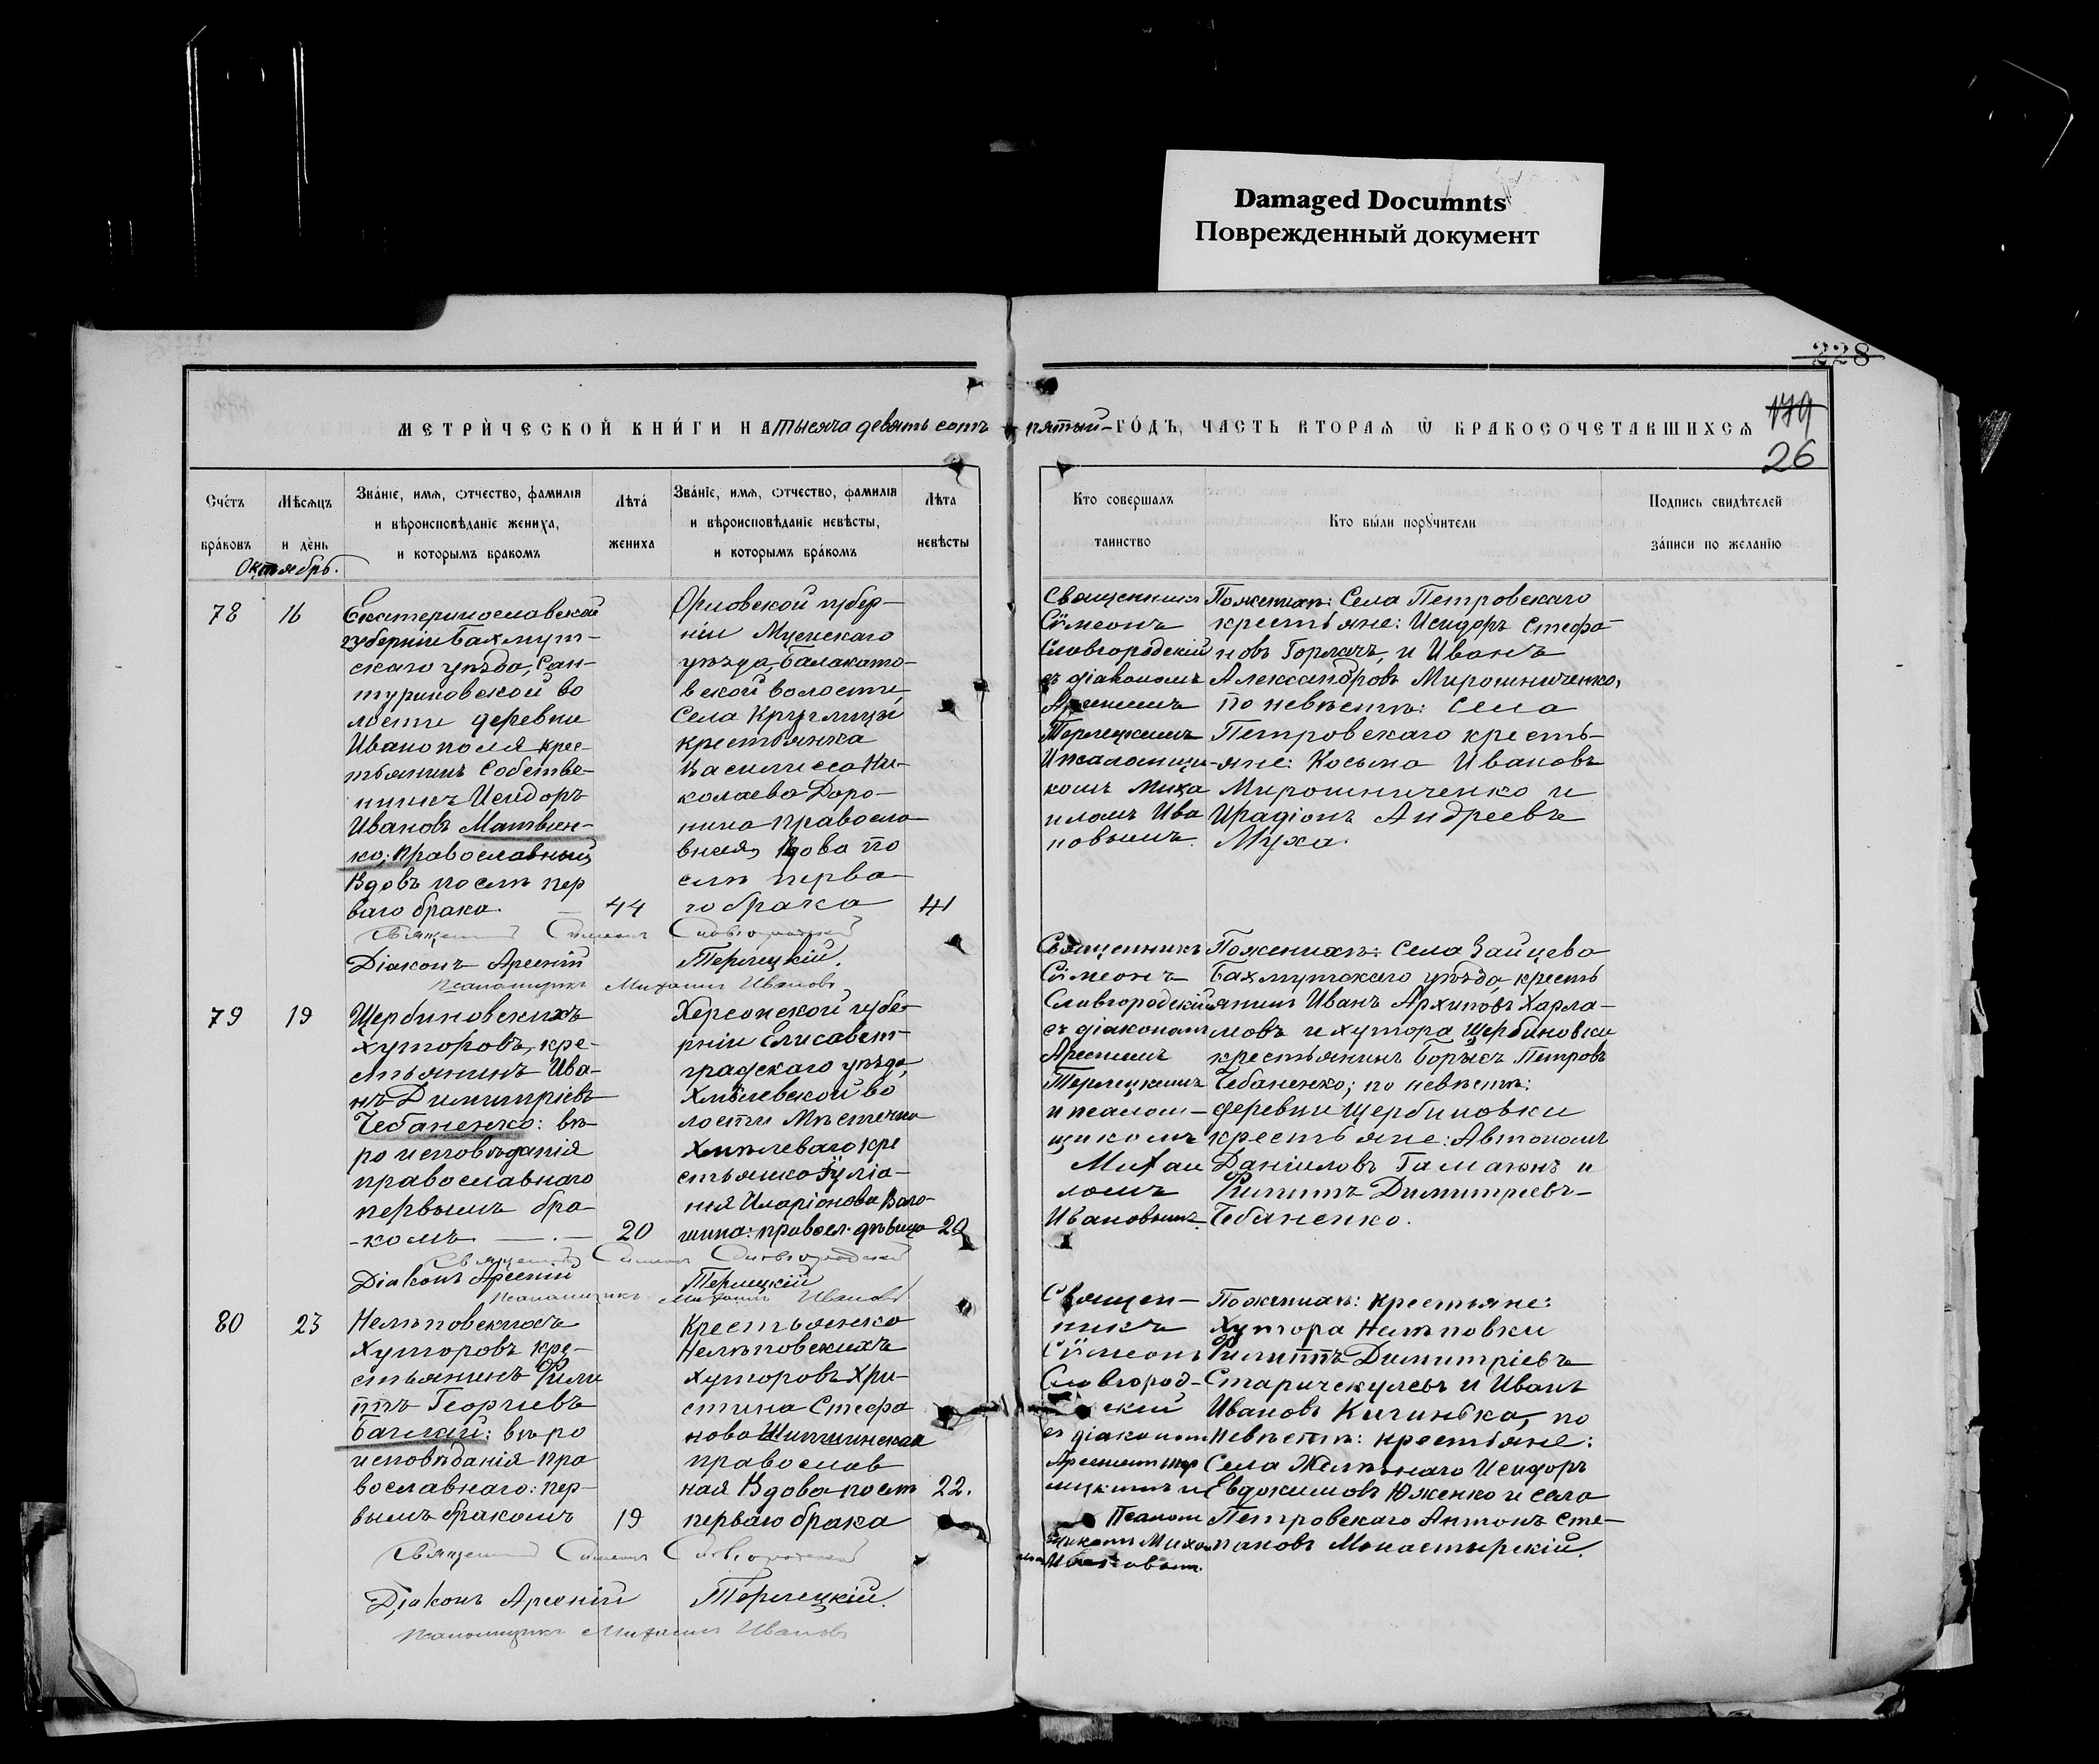 Damaged Documnts
Поврежденный документ
228
МЕТРИ́ЧЕСКОЙ КНИ́ГИ НА тысяча девять сотъ пятый ГО́ДЪ, ЧАСТЬ ВТОРАѦ Ѿ БРАКОСОЧЕТАВШИХСѦ
179
26
Сче́тъ бра́ковъ
Мѣ́сѧцъ и де́нь
Зва́нїе, имѧ, ѻтчество, фамилїя и вѣроисповѣ́данїе жениха, и которымъ бракомъ
Лѣта́ жениха
Зва́нїе, имѧ, ѻтчество, фамилїя и вѣроисповѣ́данїе невѣ́сты, и которымъ бра́комъ
Лѣта невѣ́сты
Кто совершалъ таинство
Кто бы́ли порꙋчители
Подпись свидѣ́телей за́писи по желанїю
Октябрь.
78
16
Екатеринославской
губерніи Бахмут-
скаго уѣзда, Сан-
туриновской во
лости деревни
Иванополя крес-
тьянинъ собстве-
нникъ Исидоръ
Ивановъ Матвіен-
ко; православный,
Вдовъ послѣ пер
ваго брака.
44
Орловской губер-
ніи Мценскаго
уѣзда, Балакато-
вской волости,
Села Круглицы
крестьянка
Василисса Ни-
колаева Доро-
нина православ
вная, вдова по
слѣ перва-
го брака
41
Священникъ
Сѵмеонъ
Славгородскій
съ діакономъ
Арсеніемъ
Терлецкимъ
И псаломщи-
комъ Миха
иломъ Ива
новымъ.
По женихѣ: Села Петровскаго
крестьяне: Исидоръ Стефа-
новъ Горлачъ, и Иванъ
Александровъ Мирошниченко,
по невѣстѣ: Села
Петровскаго кресть-
яне: Косьма Ивановъ
Мирошниченко и
Иродіонъ Андреевъ
Муха.
Священникъ Симеонъ Славгородскій
Діаконъ Арсеній Терлецкій.
Псаломщикъ Михаилъ Ивановъ
79
19
Щербиновскихъ
хуторовъ, кре-
стьянинъ Ива-
нъ Димитріевъ
Чебаненко: вѣ-
роисповѣданія
православнаго
первымъ бра-
-комъ
20
Херсонской губе-
рніи Елисавет-
градскаго уѣзда,
Хмѣлевской во
лости Мѣстечка
Хмѣлеваго кре
стьянка Іуліа-
нія Иларіонова Воло-
шина: правосл. дѣвица
20
Священникъ
Сѵмеонъ
Славгородскій
съ діакономъ
Арсеніемъ
Терлецкимъ
и псалом-
щикомъ
Михаи
ломъ
Ивановымъ.
По женихѣ: Села Зайцева
Бахмутскаго уѣзда, кресть
янинъ Иванъ Архиповъ Харла-
мовъ и хутора Щербиновки
крестьянинъ Борисъ Петровъ
Чебаненко; по невѣстѣ:
деревни Щербиновки
крестьяне: Автономъ
Даніиловъ Гамаюнъ и
Филиппъ Димитріевъ-
Чебаненко.
Священникъ Симеонъ Славгородскій
Діаконъ Арсеній Терлецкій
Псаломщикъ Михаилъ Ивановъ
80
23
Нелѣповскихъ
Хуторовъ кре-
стьянинъ Фили
ппъ Георгіевъ
Баглай: вѣро
исповѣданія пра
вославнаго: пер-
вымъ бракомъ
19
Крестьянка
Нелѣповскихъ
хуторовъ Хри-
стина Стефа
нова Шипшинская
православ
ная Вдова послѣ
перваго брака
22.
Священ-
никъ
Сѵмеонъ
Славгород-
скій
съ діакономъ
Арсеніемъ Тер
лецкимъ и
Псалом
щикомъ Миха
иломъ
Ивановымъ.
По женихѣ: крестьяне:
Хутора Нелѣповки
Филиппъ Димитріевъ
Старичекулевъ и Иванъ
Ивановъ Кичинька, по
невѣстѣ: крестьяне:
Села Желѣзнаго Исидоръ
Евдокимовъ Юженко и села
Петровскаго Антонъ Сте-
пановъ Монастырскій.
Священникъ Симеонъ Славгородскій
Діаконъ Арсеній Терлецкій.
Псаломщикъ Михаилъ Ивановъ